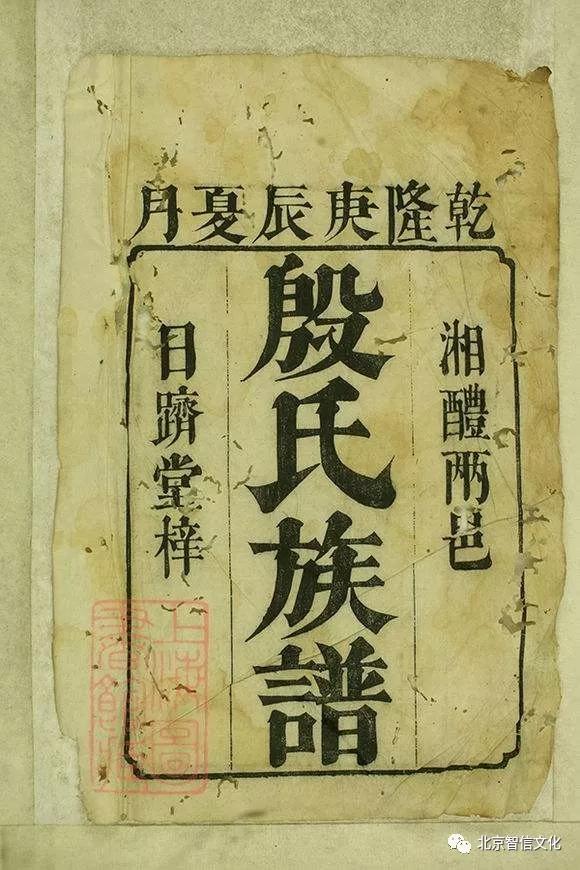 乾隆庚辰夏月
湘醴兩邑
殷氏族譜
日躋堂梓
上海圖書館藏
北京智信文化